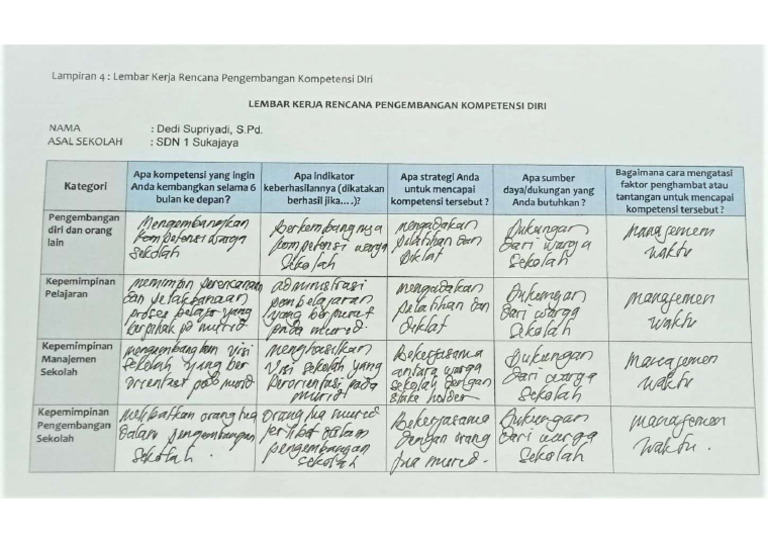 Lampiran 4 : Lembar Kerja Rencana Pengembangan Kompetensi DIri
LEMBAR KERJA RENCANA PENGEMBANGAN KOMPETENSI DIRI
NAMA : Dedi Supriyadi, S.Pd.
ASAL SEKOLAH : SDN 1 Sukajaya
Kategori
Apa kompetensi yang ingin
Anda kembangkan selama 6
bulan ke depan?
Apa indikator
keberhasilannya (dikatakan
berhasil jika....)?
Apa strategi Anda
untuk mencapai
kompetensi tersebut ?
Apa sumber
daya/dukungan yang
Anda butuhkan ?
Bagaimana cara mengatasi
faktor penghambat atau
tantangan untuk mencapai
kompetensi tersebut ?
Pengembangan
diri dan orang
lain
Mengembangkan
kompetensi warga
Sekolah
Berkembangnya
kompetensi warga
Sekolah
mengadakan
pelatihan dan
Diklat
Dukungan
dari warga
sekolah
manajemen
waktu
Kepemimpinan
Pelajaran
memimpin perencanaan
dan pelaksanaan
proses pelajar yang
berpihak pd murid
administrasi
pembelajaran
yang berpusat
pada murid
mengadakan
pelatihan dan
diklat
Dukungan
dari warga
Sekolah
manajemen
waktu
Kepemimpinan
Manajemen
Sekolah
mengembangkan visi
sekolah yang ber
orientasi pada murid
menghasilkan
visi sekolah yang
berorientasi pada
murid
Bekerjasama
antara warga
sekolah dengan
stake holder
Dukungan
dari warga
Sekolah
manajemen
waktu
Kepemimpinan
Pengembangan
Sekolah
melibatkan orang tua
dalam pengembangan
sekolah.
Orang tua murid
terlibat dalam
pengembangan
sekolah
Bekerjasama
dengan orang
tua murid.
Dukungan
dari warga
Sekolah
manajemen
waktu.